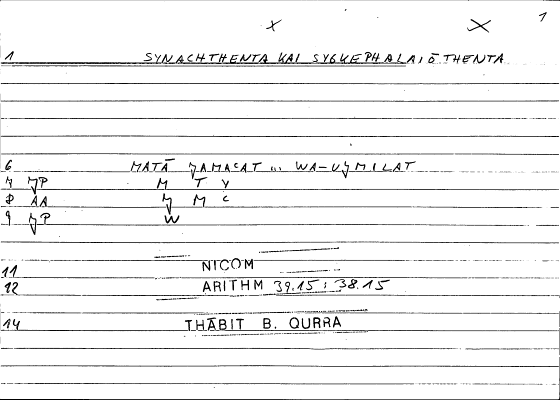 X X 1
1 SYNACHTHENTA KAI SYGKEPHALAIŌTHENTA
6 MATĀ JAMACAT ... WA-UJMILAT
7 JP M T Y
8 AA J M C
9 JP W
11 NICOM
12 ARITHM 39.15 ; 38.15
14 THĀBIT B. QURRA